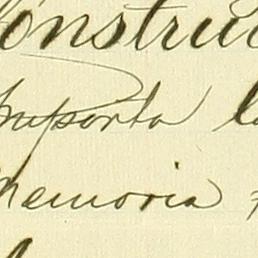 Construc
Importa l
Memoria